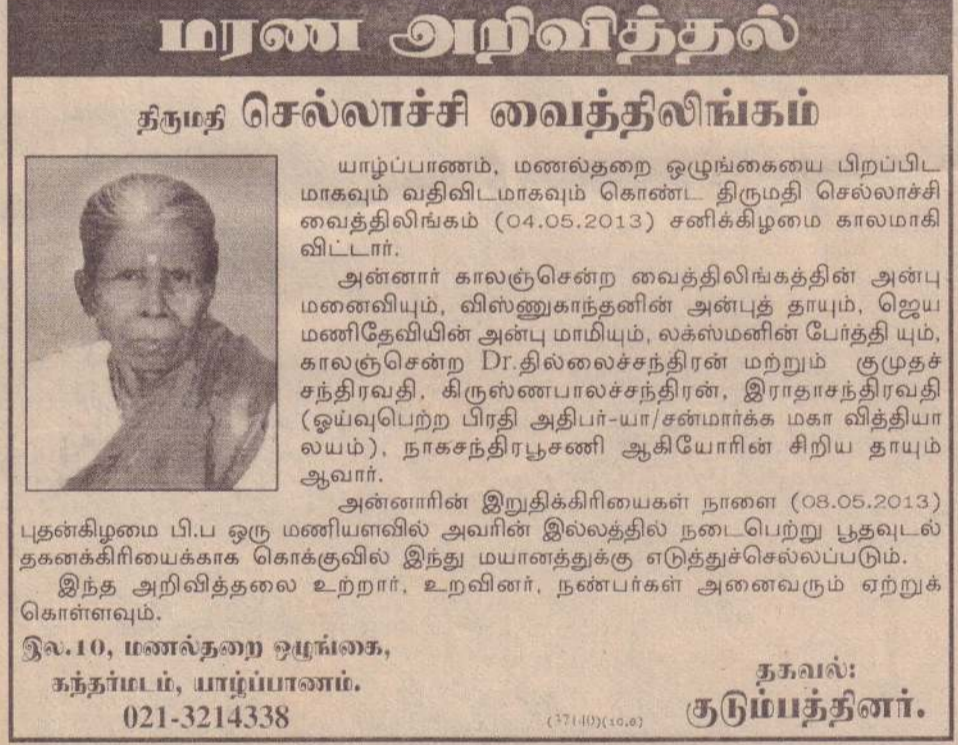 மரண அறிவித்தல்
திருமதி செல்லாச்சி வைத்திலிங்கம்
யாழ்ப்பாணம், மணல்தறை ஒழுங்கையை பிறப்பிட
மாகவும் வதிவிடமாகவும் கொண்ட திருமதி செல்லாச்சி
வைத்திலிங்கம் (04.05.2013) சனிக்கிழமை காலமாகி
விட்டார்.
அன்னார் காலஞ்சென்ற வைத்திலிங்கத்தின் அன்பு
மனைவியும், விஸ்ணுகாந்தனின் அன்புத் தாயும், ஜெய
மணிதேவியின் அன்பு மாமியும், லக்ஸ்மனின் பேர்த்தி யும்,
காலஞ்சென்ற Dr.தில்லைச்சந்திரன் மற்றும் குமுதச்
சந்திரவதி, கிருஸ்ணபாலச்சந்திரன், இராதாசந்திரவதி
(ஓய்வுபெற்ற பிரதி அதிபர்-யா/சன்மார்க்க மகா வித்தியா
லயம்), நாகசந்திரபூசணி ஆகியோரின் சிறிய தாயும்
ஆவார்.
அன்னாரின் இறுதிக்கிரியைகள் நாளை (08.05.2013)
புதன்கிழமை பி.ப ஒரு மணியளவில் அவரின் இல்லத்தில் நடைபெற்று பூதவுடல்
தகனக்கிரியைக்காக கொக்குவில் இந்து மயானத்துக்கு எடுத்துச்செல்லப்படும்.
இந்த அறிவித்தலை உற்றார், உறவினர், நண்பர்கள் அனைவரும் ஏற்றுக்
கொள்ளவும்.
இல.10, மணல்தறை ஒழுங்கை,
கந்தர்மடம், யாழ்ப்பாணம்.
021-3214338
(37140)(10.0)
தகவல்:
குடும்பத்தினர்.